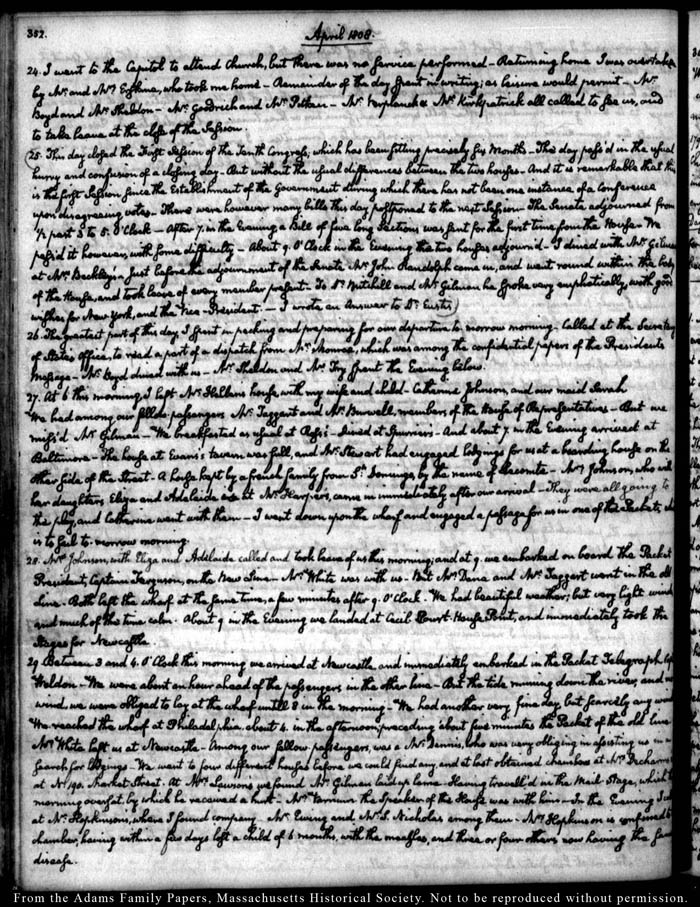 352.
April 1808.
24. I went to the Capitol to attend Church, but there was no service performed – Returning home I was overtaken
by Mr. and Mrs. Erskine, who took me home – Remainder of the day spent in writing; as leisure would permit – Mr.
Boyd and Mr. Sheldon – Mr. Goodrich and Mr. Pitkin – Mr. Verplanck & Mr. Kirkpatrick all called to see us, and
to take leave at the close of the Session.
25. This day closed the First Session of the Tenth Congress, which has been sitting precisely six Months – This day pass'd in the usual
hurry and confusion of a closing day – But without the usual differences between the two houses – And it is remarkable that this
is the first Session since the Establishment of the Government during which there has not been one instance of a Conference
upon disagreeing votes – There were however many bills this day postponed to the next Session – The Senate adjourned from
½ past 3 to 5. O'Clock – After 7. in the Evening a Bill of five long Sections was sent for the first time from the House – We
pass'd it however, with some difficulty – About 9. O'Clock in the Evening the two houses adjourn'd – I dined with Mr. Gilman
at Mr. Beckley's – Just before the adjournment of the Senate Mr. John Randolph came in, and went round within the
of the House, and took leave of every member present – To Dr. Mitchell and Mr. Gilman he spoke very emphatically, with good
wishes for New York, and the Vice-President. – I wrote an Answer to Dr. Eustis)
26. The greatest part of this day I spent in packing and preparing for our departure to-morrow morning – Called at the Secretary
of State's Office, to read a part of a dispatch from Mr. Monroe, which was among the confidential papers of the President's
Message – Mr. Boyd dined with us – Mr. Sheldon and Mr. Fry spent the Evening below.
27. At 6 this morning I left Mr. Hellen's house, with my wife and child – Catherine Johnson, and our maid Sarah
We had among our fellow passengers Mr. Taggart and Mr. Burwell, members of the House of Representatives – But we
miss'd Mr. Gilman – We breakfasted as usual at Ross's – dined at Spurrier's – And about 7. in the Evening arrived at
Baltimore – The house at Evans's tavern was full, and Mr. Stewart had engaged lodgings for us at a boarding house on the
other side of the Street – A house kept by a french family from St. Domingo, by the name of – Mrs. Johnson, who with
her daughters Eliza and Adelaide are at Mr. Harper's, came in immediately after our arrival – They were all going to
the play, and Catherine went with them – I went down upon the wharf and engaged a passage for us in one of the Packets,
is to sail to-morrow morning.
28. Mrs. Johnson, with Eliza and Adelaide called and took leave of us this morning; and at 9. we embarked on board the Packet
President, Captain Ferguson, on the New Line – Mr. White was with us – But Mr. Dana and Mr. Taggart went in the old
Line. Both left the wharf at the same time, a few minutes after 9. O'Clock – We had beautiful weather; but very light wind
and much of the time calm. About 9 in the Evening we landed at Cecil Court-House Point, and immediately took the
Stages for Newcastle.
29. Between 3 and 4. O'Clock this morning we arrived at Newcastle, and immediately embarked in the Packet Telegraph,
Weldon – We were about an hour ahead of the passengers in the other line – But the tide running down the river, and no
wind we were obliged to lay at the wharf untill 8 in the morning – We had another very fine day but scarcely any wind
We reached the wharf at Philadelphia about 4. in the afternoon preceding about five minutes the Packet of the old line
Mr. White left us at Newcastle – Among our fellow passengers, was a Mr. Dennis, who was very obliging in assisting us in a
search for lodgings – We went to four different houses before we could find any, and at last obtained chambers at Mrs.
at No. 190. Market Street. At Mrs. Lawson's we found Mr. Gilman laid up lame – Having travell'd in the Mail Stage, which
morning overset, by which he received a hurt – Mr. Varnum the Speaker of the House was with him – In the Evening I
at Mr. Hopkinson's, where I found company. Mr. Ewing and Mr. S. Nicholas among them – Mrs. Hopkinson is confined to
chamber, having within a few days lost a child of 6 months, with the measles, and three or four others now having the same
disease.
From the Adams Family Papers, Massachusetts Historical Society. Not to be reproduced without permission.